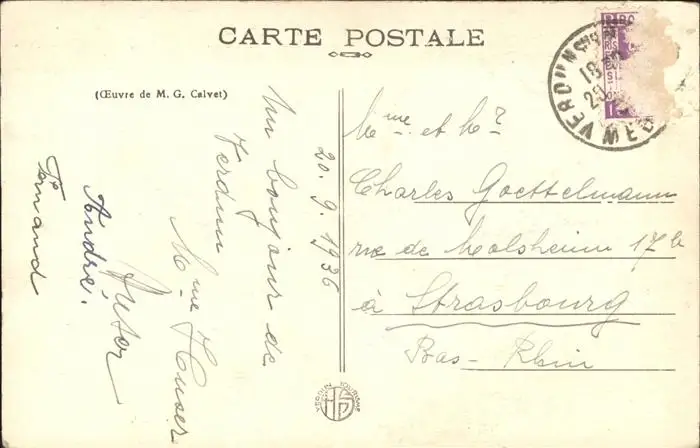 CARTE POSTALE
(Œuvre de M. G. Calvet)
20.9.1936
Un bonjour de
Verdun
Mme Huser
Victor
André.
Fernand
Mme et Mr
Charles Goettelmann
rue de Molsheim 17b
à Strasbourg
Bas-Rhin
VERDUN S
18
20
MEU
VERDUN TOURISME